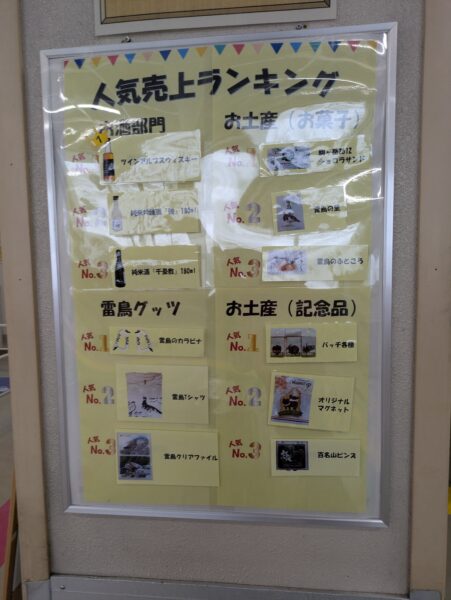 人気売上ランキング
お酒部門
人気
No.1
ツインアルプスウィスキー
人気
No.2
180ml
人気
No.3
純米酒「千畳敷」180ml
お土産（お菓子）
人気
No.1
ショコラサンド
人気
No.2
雷鳥の里
人気
No.3
雷鳥のふところ
雷鳥グッツ
人気
No.1
雷鳥のカラビナ
人気
No.2
雷鳥Tシャツ
人気
No.3
雷鳥クリアファイル
お土産（記念品）
人気
No.1
バッチ各種
人気
No.2
オリジナル
マグネット
人気
No.3
百名山ピンズ